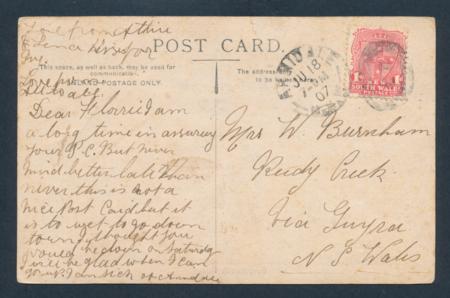 Love from
POST CARD.
This space, as well as back, may be used for
communication.
(INLAND POSTAGE ONLY.)
The address
to be
ARMIDALE
JU 8
07
N.S.W
SOUTH WALES
POSTAGE
Dear Florrie I am
a long time in answering
your P.C. But never
mind better late than
never this is not a
nice Post Card but it
is to wet to go down
town I thought you
would be down on Saturday
will be glad when I can
go up I am sick of
Mrs W. Burnham
Rudy Creek
Via Guyra
N S Wales